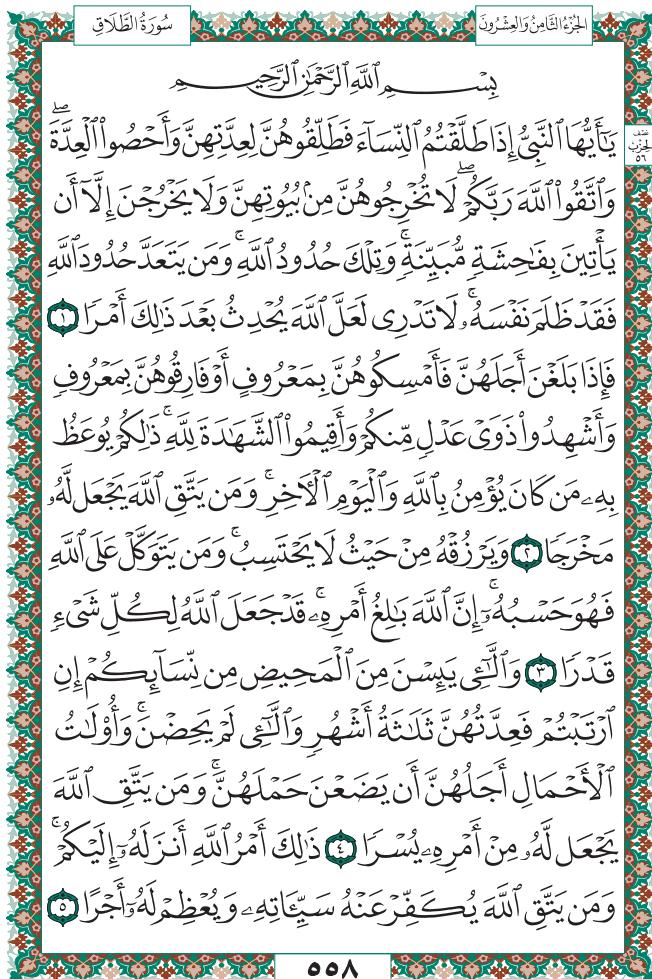 سُورَةُ الطَّلَاقِ
الجُزْءُ الثَّامِنُ وَالعِشْرُونَ
بِسْمِ ٱللَّهِ ٱلرَّحْمَٰنِ ٱلرَّحِيمِ
يَٰٓأَيُّهَا ٱلنَّبِىُّ إِذَا طَلَّقْتُمُ ٱلنِّسَآءَ فَطَلِّقُوهُنَّ لِعِدَّتِهِنَّ وَأَحْصُوا۟ ٱلْعِدَّةَۖ
نصف الحزب ٥٦
وَٱتَّقُوا۟ ٱللَّهَ رَبَّكُمْۖ لَا تُخْرِجُوهُنَّ مِنۢ بُيُوتِهِنَّ وَلَا يَخْرُجْنَ إِلَّآ أَن
يَأْتِينَ بِفَٰحِشَةٍ مُّبَيِّنَةٍۚ وَتِلْكَ حُدُودُ ٱللَّهِۚ وَمَن يَتَعَدَّ حُدُودَ ٱللَّهِ
فَقَدْ ظَلَمَ نَفْسَهُۥۚ لَا تَدْرِى لَعَلَّ ٱللَّهَ يُحْدِثُ بَعْدَ ذَٰلِكَ أَمْرًا ١
فَإِذَا بَلَغْنَ أَجَلَهُنَّ فَأَمْسِكُوهُنَّ بِمَعْرُوفٍ أَوْ فَارِقُوهُنَّ بِمَعْرُوفٍ
وَأَشْهِدُوا۟ ذَوَىْ عَدْلٍ مِّنكُمْ وَأَقِيمُوا۟ ٱلشَّهَٰدَةَ لِلَّهِۚ ذَٰلِكُمْ يُوعَظُ
بِهِۦ مَن كَانَ يُؤْمِنُ بِٱللَّهِ وَٱلْيَوْمِ ٱلْءَاخِرِۚ وَمَن يَتَّقِ ٱللَّهَ يَجْعَل لَّهُۥ
مَخْرَجًا ٢ وَيَرْزُقْهُ مِنْ حَيْثُ لَا يَحْتَسِبُۚ وَمَن يَتَوَكَّلْ عَلَى ٱللَّهِ
فَهُوَ حَسْبُهُۥٓۚ إِنَّ ٱللَّهَ بَٰلِغُ أَمْرِهِۦۚ قَدْ جَعَلَ ٱللَّهُ لِكُلِّ شَىْءٍ
قَدْرًا ٣ وَٱلَّٰٓـِٔى يَئِسْنَ مِنَ ٱلْمَحِيضِ مِن نِّسَآئِكُمْ إِنِ
ٱرْتَبْتُمْ فَعِدَّتُهُنَّ ثَلَٰثَةُ أَشْهُرٍ وَٱلَّٰٓـِٔى لَمْ يَحِضْنَۚ وَأُو۟لَٰتُ
ٱلْأَحْمَالِ أَجَلُهُنَّ أَن يَضَعْنَ حَمْلَهُنَّۚ وَمَن يَتَّقِ ٱللَّهَ
يَجْعَل لَّهُۥ مِنْ أَمْرِهِۦ يُسْرًا ٤ ذَٰلِكَ أَمْرُ ٱللَّهِ أَنزَلَهُۥٓ إِلَيْكُمْۚ
وَمَن يَتَّقِ ٱللَّهَ يُكَفِّرْ عَنْهُ سَيِّـَٔاتِهِۦ وَيُعْظِمْ لَهُۥٓ أَجْرًا ٥
٥٥٨